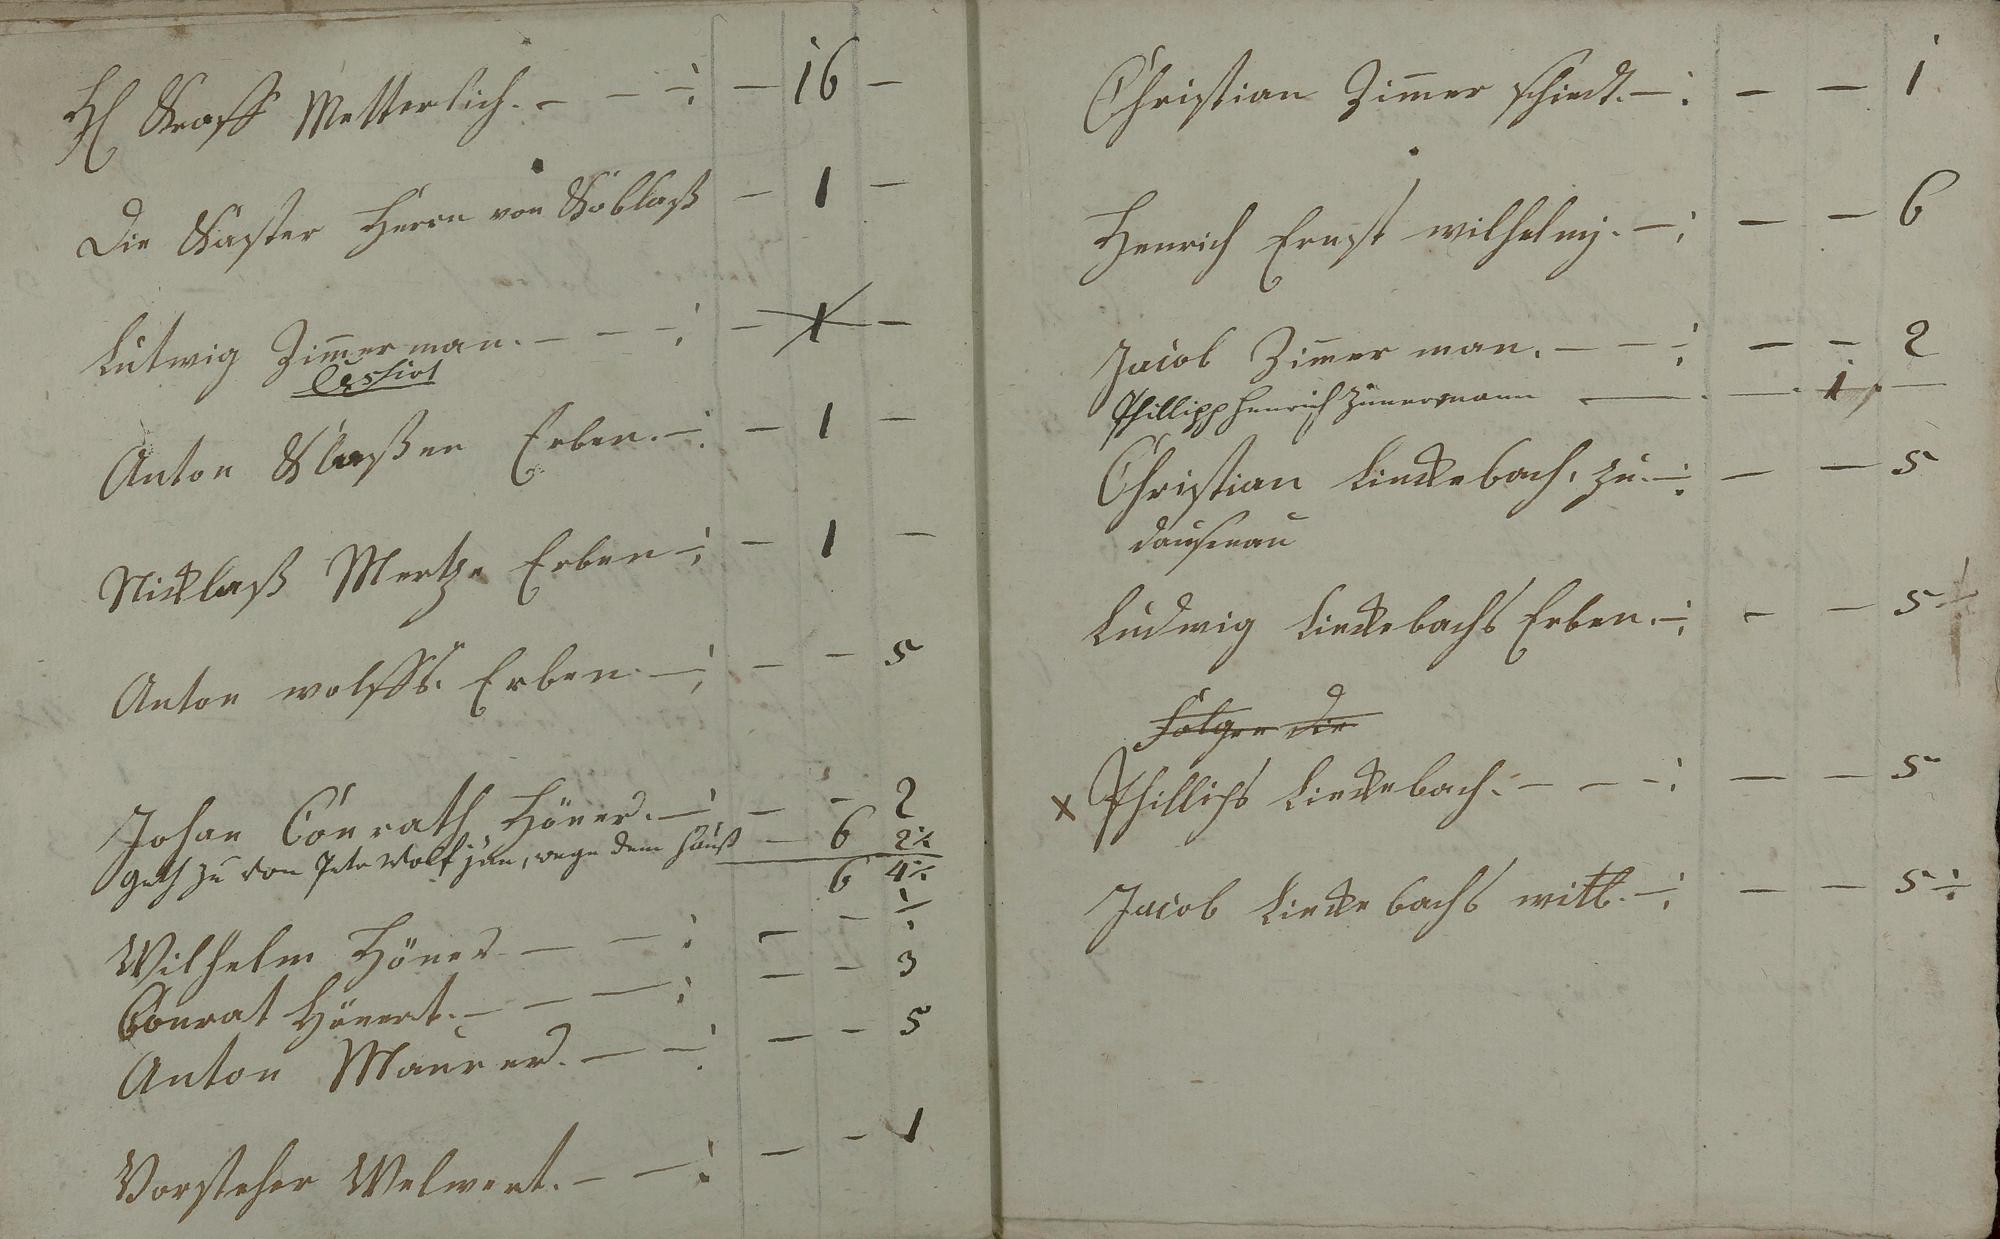 H Graff Metterlich. — — ÷ — 16 —
Die Kaster Herrn von Köblaß — 1 —
Lutwig Zimmerman. — — ÷ — 1 —
Cessirt
Anton Klaßen Erben. ÷ — 1 —
Nicklaß Mertze Erben ÷ — 1 —
Anton wolffs. Erben — ÷ — — 5
Johan Conrath Höner. — ÷ — — 2
geth zu von Peter Wolf jun, wege dem Hauß — 6 2 ½
6 4 ½
Wilhelm Höner — — ÷ — — ½
Conrat Hönert. — — — ÷ — — 3
Anton Maurer. — ÷ — — 5
Vorsteher Welwert. — — ÷ — — 1
Christian Zimmer schiedt. — ÷ — — 1
Henrich Ernst wilhelmj. — ÷ — — 6
Jacob Zimmerman. — — ÷ — — 2
Phillipp Henrich Zimmermann — — 1 —
Christian Linckebach, zu ÷ — — 5
dausenau
Ludwig Linckebachs Erben. ÷ — — 5 ½
Folgen die
x Phillips Linckebach. — — ÷ — — 5
Jacob Linckebachs witb. ÷ — — 5 ½